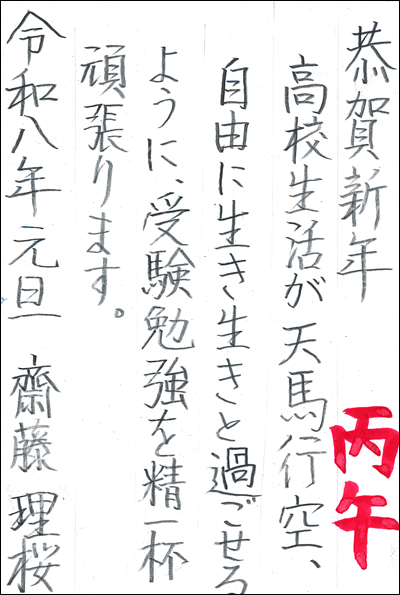 恭賀新年
丙午
高校生活が天馬行空、
自由に生き生きと過ごせる
ように、受験勉強を精一杯
頑張ります。
令和八年元旦 齋藤理桜